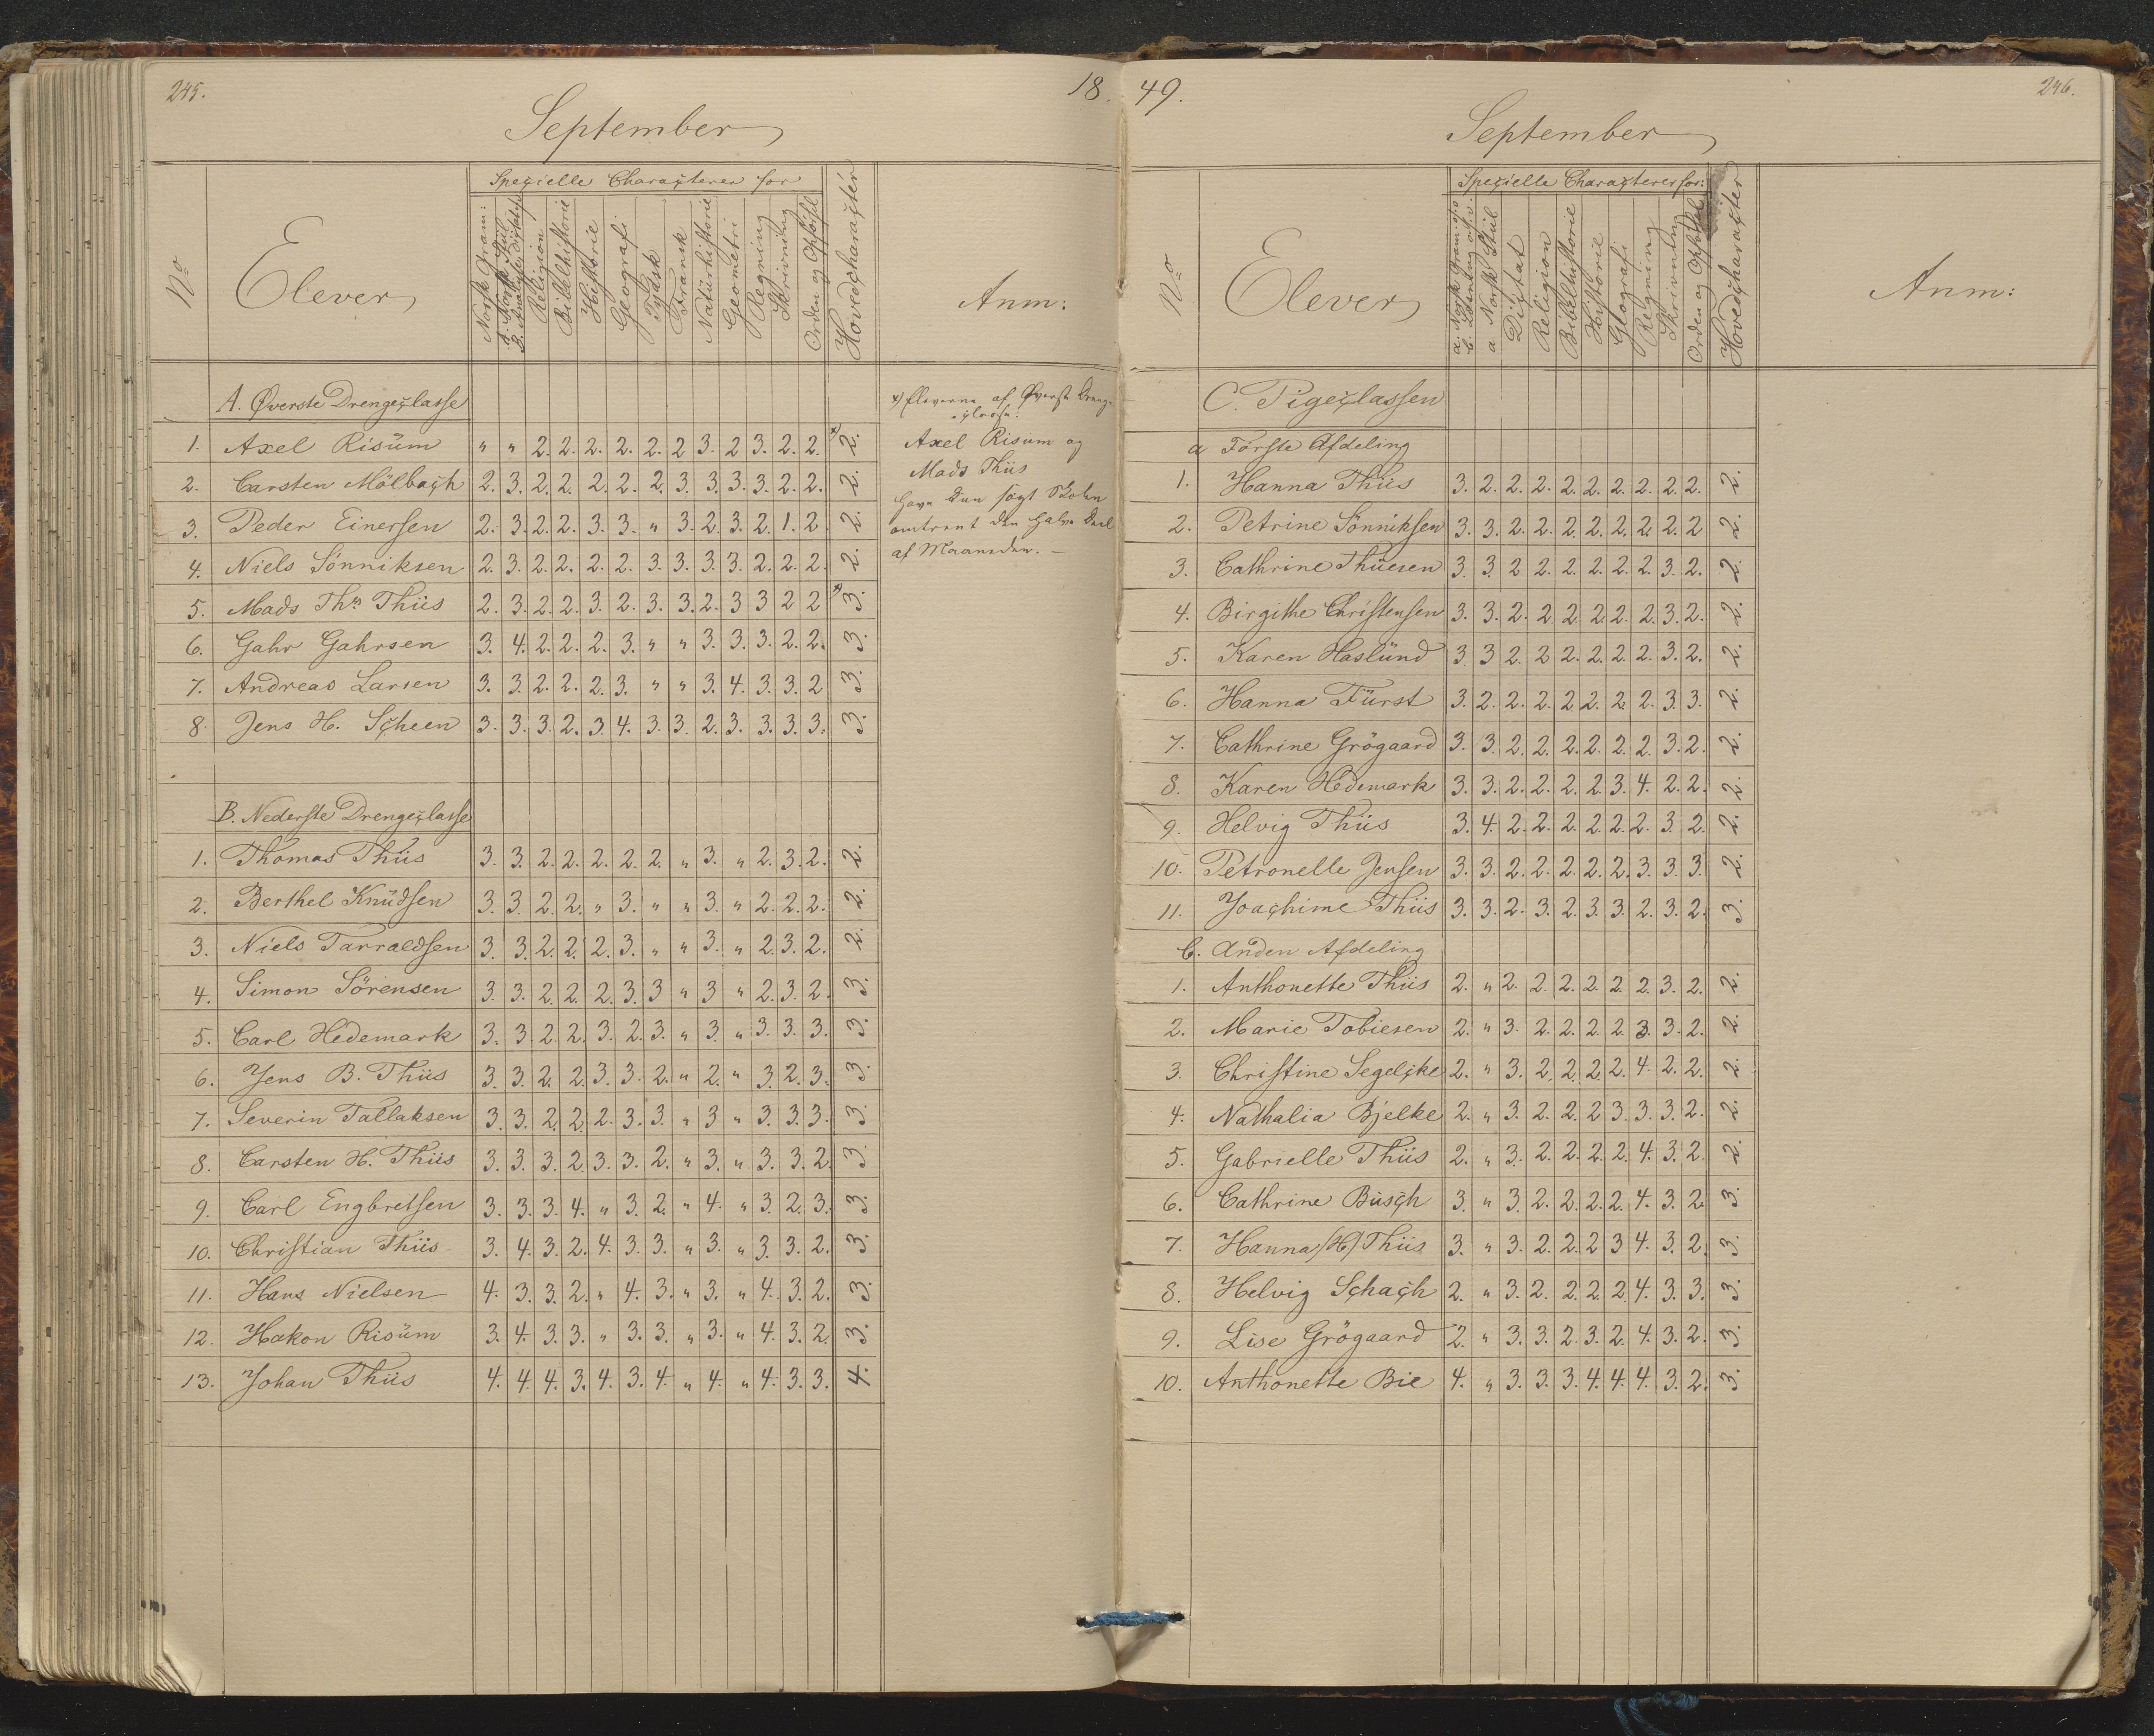 245.
18
September
No
Elever
Specielle Characterer for
Norsk Gram:
A. Norsk Stiil
B. Analyse, Dictat
Religion
Bibelhistorie
Historie
Geografi
Tydsk
Fransk
Naturhistorie
Geometri
Regning
Skrivning
Orden og Opførsl
Hovedcharacter
Anm:
A. Øverste Drengeclasse
1. Axel Risüm " " 2. 2. 2. 2. 2. 2 3. 2 3. 2. 2. x) 2.
2. Carsten Mölbach 2. 3. 2. 2. 2. 2. 2. 3. 3. 3. 3. 2. 2. 2.
3. Peder Einersen 2. 3. 2. 2. 3. 3. " 3. 2. 3. 2. 1. 2. 2.
4. Niels Sönniksen 2. 3. 2. 2. 2. 2. 3. 3. 3. 3. 2. 2. 2. 2.
5. Mads Ths Thiis 2. 3. 2. 2. 3. 2. 3. 3. 2. 3 3 2 2 x) 3.
6. Gahr Gahrsen 3. 4. 2. 2. 2. 3. " " 3. 3. 3. 2. 2. 3.
7. Andreas Larsen 3. 3. 2. 2. 2. 3. " " 3. 4. 3. 3. 2 3.
8. Jens H. Scheen 3. 3. 3. 2. 3. 4. 3. 3. 2. 3. 3. 3. 3. 3.
x) Eleverne af Øverste Drenge-
classe:
Axel Risum og
Mads Thiis
have kun søgt Skolen
omtrent den halve Deel
af Maaneden. —
B. Nederste Drengeclasse
1. Thomas Thiis 3. 3. 2. 2. 2. 2. 2. " 3. " 2. 3. 2. 2.
2. Berthel Knüdsen 3. 3. 2. 2. " 3. " " 3. " 2. 2. 2. 2.
3. Niels Tarraldsen 3. 3. 2. 2. 2. 3. " " 3. " 2. 3. 2. 2.
4. Simon Sörensen 3. 3. 2. 2. 2. 3. 3 " 3 " 2. 3. 2. 3.
5. Carl Hedemark 3. 3. 2. 2. 3. 2. 3. " 3. " 3. 3. 3. 3.
6. Jens B. Thiis 3. 3. 2. 2. 3. 3. 2. " 2. " 3. 2. 3. 3.
7. Severin Tallaksen 3. 3. 2. 2. 2. 3. 3. " 3 " 3. 3. 3. 3.
8. Carsten H. Thiis 3. 3. 3. 2. 3. 3. 2. " 3. " 3. 3. 2. 3.
9. Carl Engbretsen 3. 3. 3. 4. " 3. 2. " 4. " 3. 2. 3. 3.
10. Christian Thiis 3. 4. 3. 2. 4. 3. 3. " 3. " 3. 3. 2. 3.
11. Hans Nielsen 4. 3. 3. 2. " 4. 3. " 3. " 4. 3. 2. 3.
12. Hakon Risüm 3. 4. 3. 3. " 3. 3. " 3. " 4. 3. 2. 3.
13. Johan Thiis 4. 4. 4. 3. 4. 3. 4. " 4. " 4. 3. 3. 4.
49.
246.
September
No
Elever
Specielle Characterer for:
a. Norsk Gram: o.s.v.
b. Læsning o.s.v.
a Norsk Stiil
Dictat
Religion
Bibelhistorie
Historie
Geografi
Regning
Skrivning
Orden og Opførsel
Hovedcharacter
Anm:
C. Pigeclassen
a Første Afdeling
1. Hanna Thiis 3. 2. 2. 2. 2. 2. 2. 2. 2. 2. 2.
2. Petrine Sönniksen 3. 3. 2. 2. 2. 2. 2. 2. 2. 2 2.
3. Cathrine Thüesen 3. 3. 2 2. 2. 2. 2. 2. 3. 2. 2.
4. Birgithe Christensen 3. 3. 2. 2. 2. 2. 2. 2. 3. 2. 2.
5. Karen Haslünd 3. 3 2. 2 2. 2. 2. 2. 3. 2. 2.
6. Hanna Fürst 3. 2. 2. 2. 2. 2. 2. 2. 3. 3. 2.
7. Cathrine Grögaard 3. 3. 2. 2. 2. 2. 2. 2. 3. 2. 2.
8. Karen Hedemark 3. 3. 2. 2. 2. 2. 3. 4. 2. 2. 2.
9. Helvig Thiis 3. 4. 2. 2. 2. 2. 2. 2. 3. 2. 2.
10. Petronelle Jensen 3. 3. 2. 2. 2. 2. 2. 3. 3. 3. 2.
11. Joachime Thiis 3. 3. 2. 3. 2. 3. 3. 2. 3. 2. 3.
b. Anden Afdeling
1. Anthonette Thiis 2. " 2. 2. 2. 2. 2. 2. 3. 2. 2.
2. Marie Tobiesen 2. " 3. 2. 2. 2. 2. 3. 3. 2. 2.
3. Christine Segelcke 2. " 3. 2. 2. 2. 2. 4. 2. 2. 2.
4. Nathalia Bjelke 2. " 3. 2. 2. 2. 3. 3. 3. 2. 2.
5. Gabrielle Thiis 2. " 3. 2. 2. 2. 2. 4. 3. 2. 2.
6. Cathrine Büsch 3. " 3. 2. 2. 2. 2. 4. 3. 2. 3.
7. Hanna (H) Thiis 3. " 3. 2. 2. 2 3 4. 3. 2. 3.
8. Helvig Schach 2. " 3. 2. 2. 2. 2. 4. 3. 3. 3.
9. Lise Grögaard 2. " 3. 3. 2. 3. 2. 4. 3. 2. 3.
10. Anthonette Bie 4. " 3. 3. 3. 4. 4. 4. 3. 2. 3.